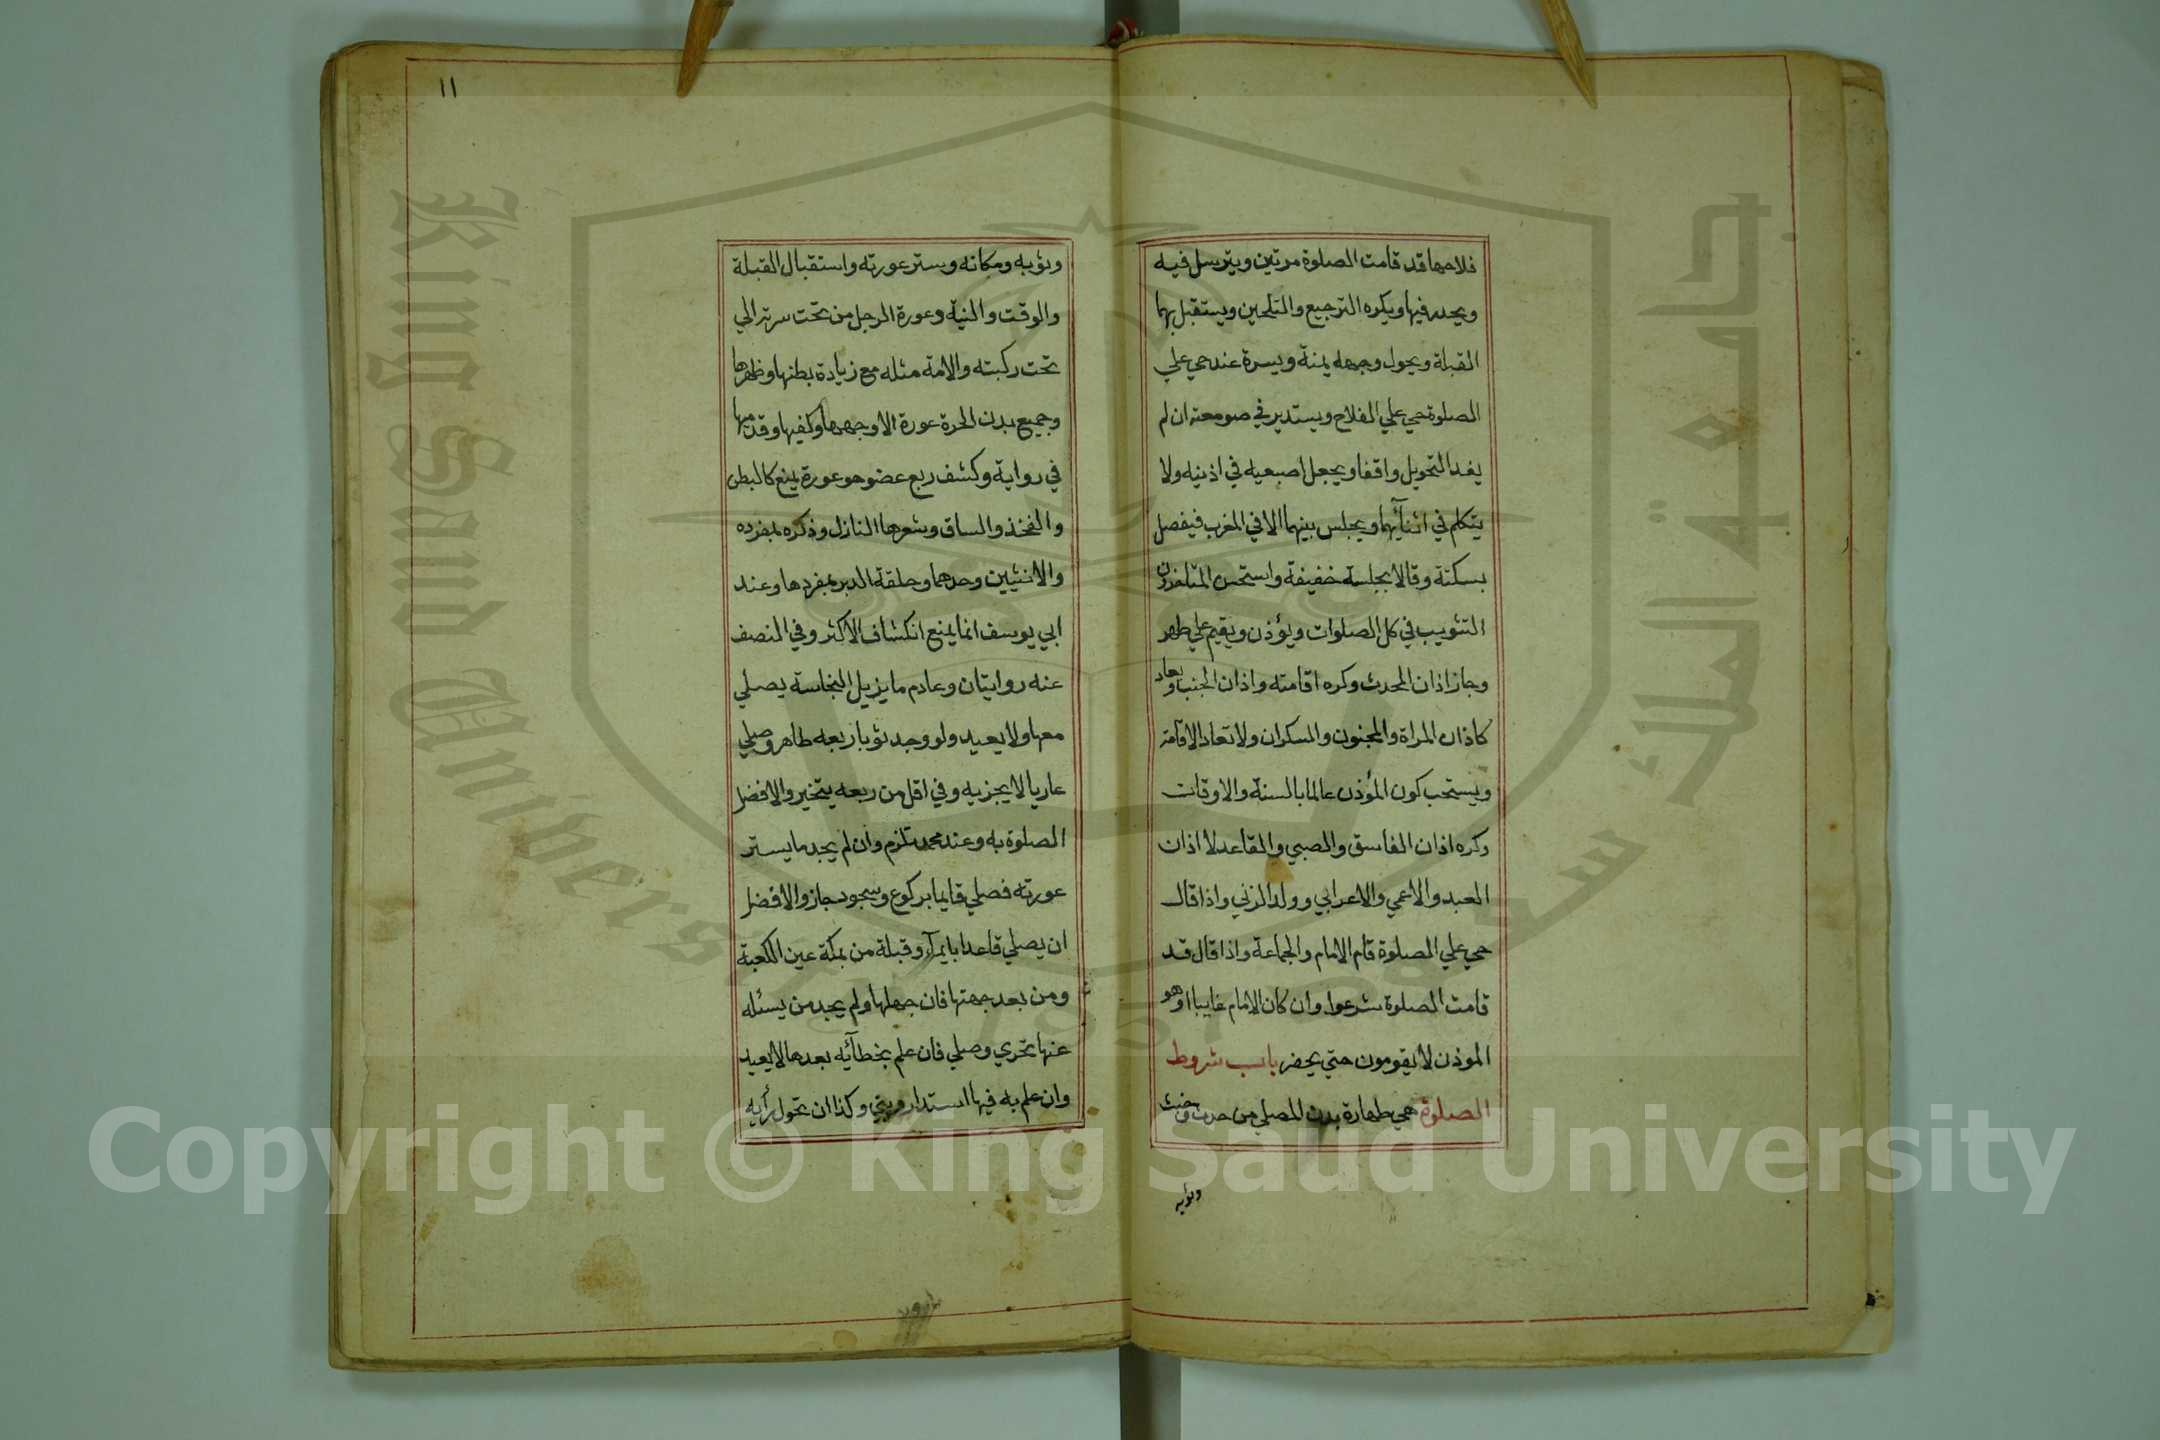 فلاحها قد قامت الصلوة مرتين ويترسل فيه
ويحدر فيها ويكره الترجيع والتلحين ويستقبل بهما
القبلة ويحول وجهه يمنة ويسرة عند حي علي
الصلوة حي علي الفلاح ويستدير في صومعته ان لم
يفد التحويل واقفا ويجعل اصبعيه في اذنيه ولا
يتكلم في اثنآئهما ويجلس بينهما الا في المغرب فيفصل
بسكتة وقالا بجلسة خفيفة واستحسن المتاخرون
التثويب في كل الصلوات ويؤذن ويقيم علي طهر
وجاز اذان المحدث وكره اقامته واذان الجنب ويعاد
كاذان المراة والمجنون والسكران ولا تعاد الاقامة
ويستحب كون المؤذن عالما بالسنة والاوقات
وكره اذان الفاسق والصبي والقاعد لا اذان
العبد والاعمي والاعرابي وولد الزني واذا قال
حي علي الصلوة قام الامام والجماعة واذا قال قد
قامت الصلوة شرعوا وان كان الامام غايبا او هو
الموذن لا يقومون حتي يحضر باب شروط
الصلوة هي طهارة بدن المصلي من حدث وخبث
وثوبه
١١
وثوبه ومكانه وستر عورته واستقبال القبلة
والوقت والنية وعورة الرجل من تحت سرته الي
تحت ركبته والامة مثله مع زيادة بطنها وظهرها
وجميع بدن الحرة عورة الا وجهها وكفيها وقدميها
في رواية وكشف ربع عضو هو عورة يمنع كالبطن
والفخذ والساق وشعرها النازل وذكره بمفرده
والانثيين وحدهما وحلقة الدبر بمفردها وعند
ابي يوسف انما يمنع انكشاف الاكثر وفي النصف
عنه روايتان وعادم ما يزيل النجاسة يصلي
معها ولا يعيد ولو وجد ثوبا ربعه طاهر وصلي
عاريا لا يجزيه وفي اقل من ربعه يتخير والافضل
الصلوة به وعند محمد تلزم وان لم يجد ما يستر
عورته فصلي قايما بركوع وسجود جاز والافضل
ان يصلي قاعدا بايمآء وقبلة من بمكة عين الكعبة
ومن بعد جهتها فان جهلها ولم يجد من يسئله
عنها تحري وصلي فان علم بخطآئه بعدها لا يعيد
وان علم به فيها استدار وبني وكذا ان تحول رأيه
King Saud University
جامعة الملك سعود
1957
Copyright © King Saud University